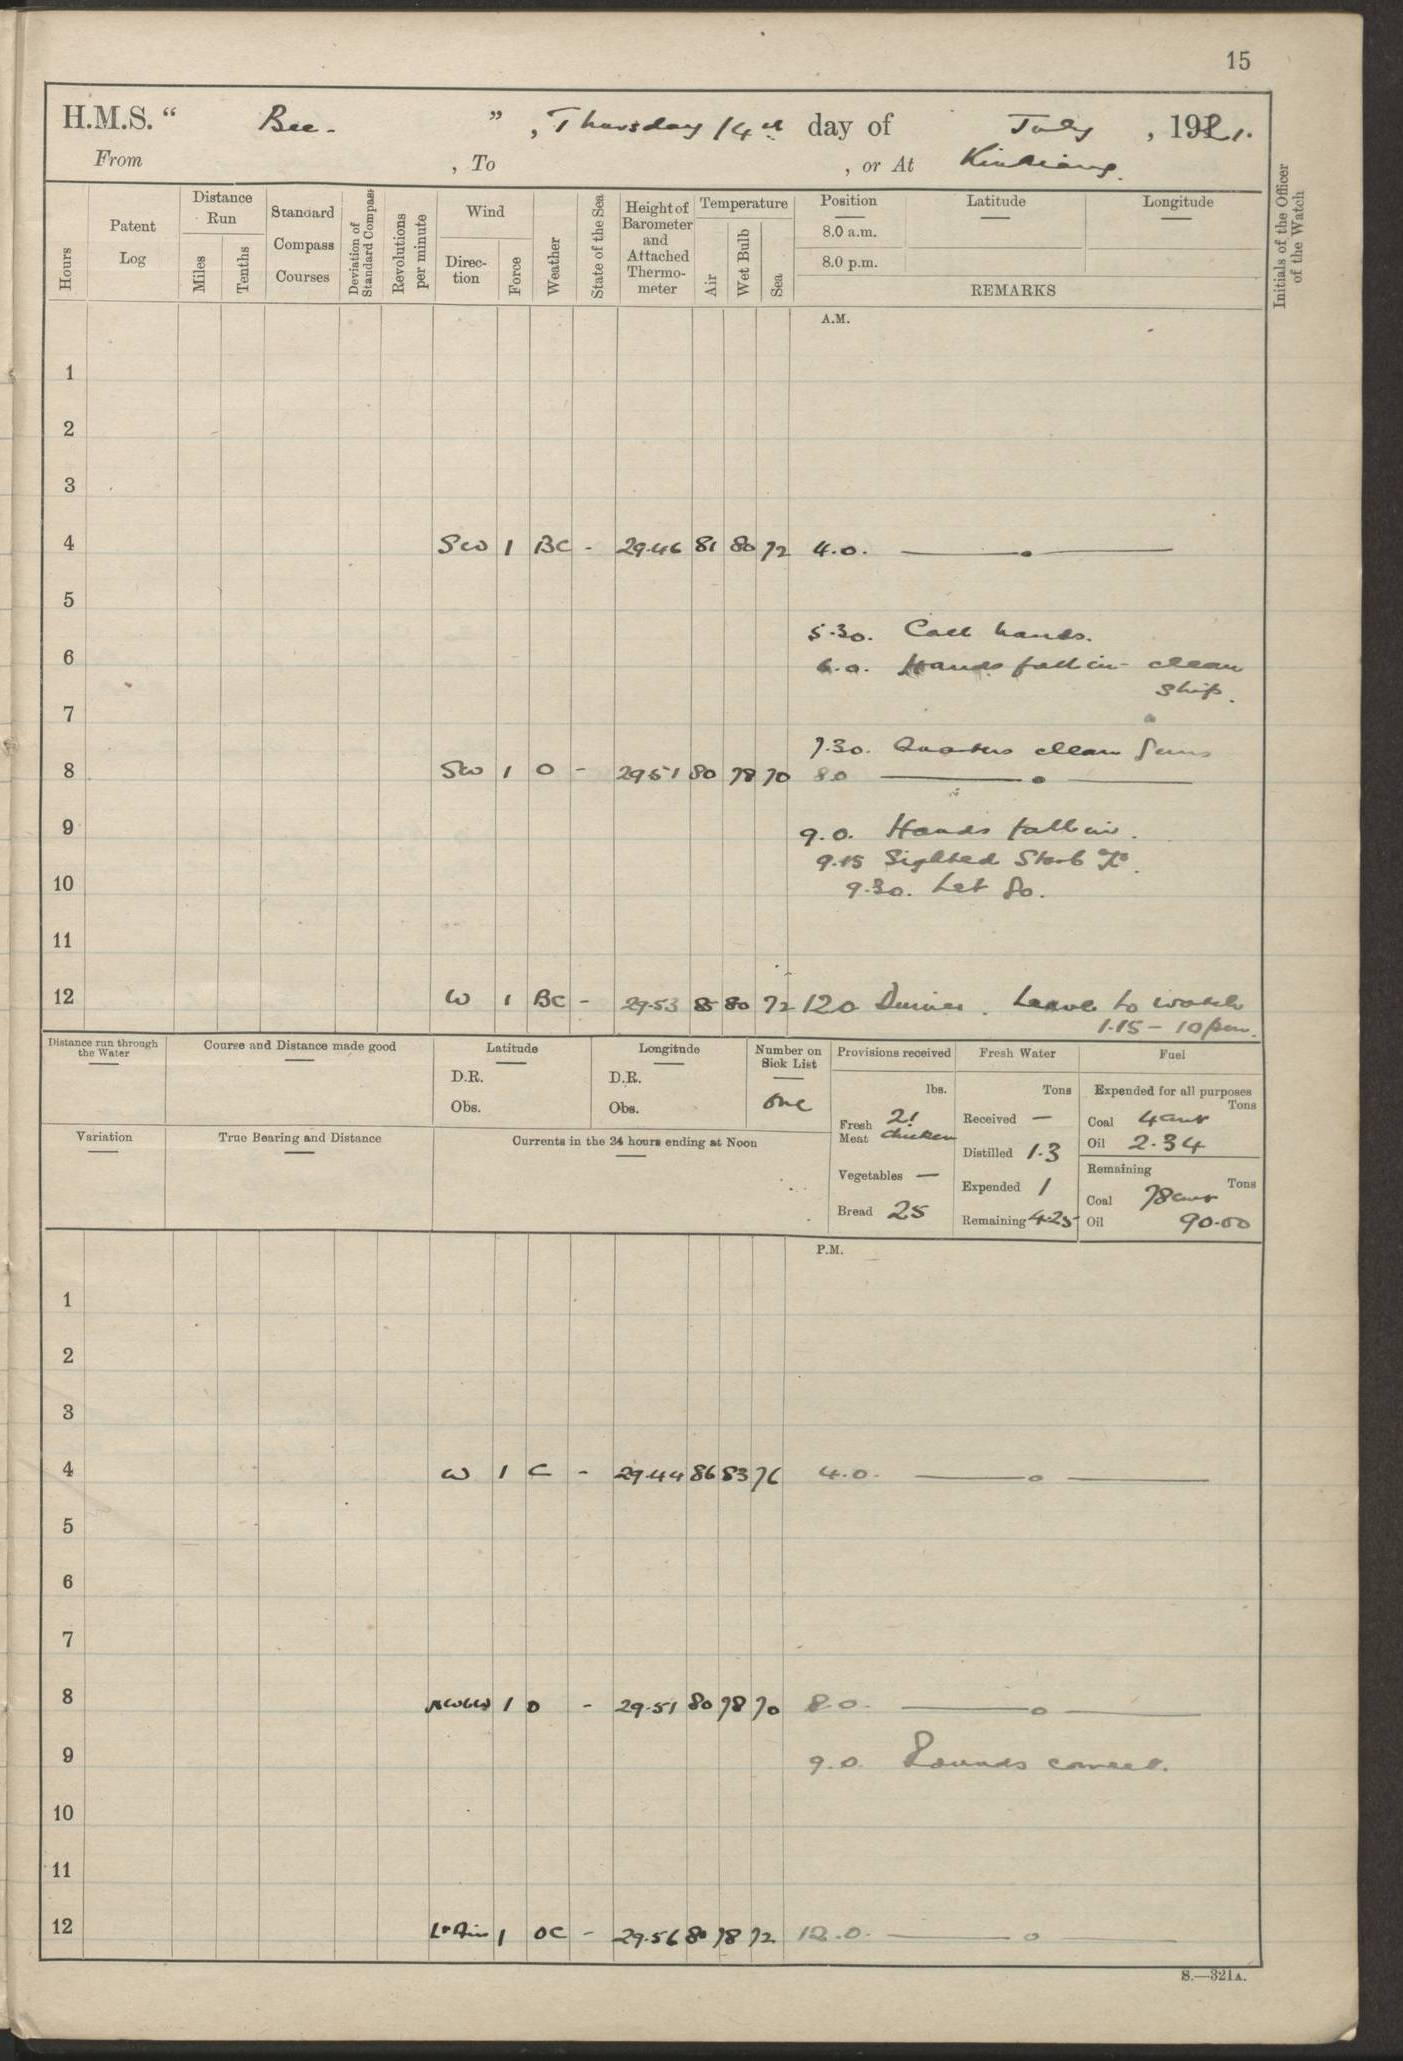 15
H.M.S. " Bee. ", Thursday 14th day of July, 1921.
From , To , or At Kiukiang.
Hours
Patent Log
Distance Run
Miles
Tenths
Standard Compass Courses
Deviation of Standard Compass
Revolutions per minute
Wind
Direction
Force
Weather
State of the Sea
Height of Barometer and Attached Thermometer
Temperature
Air
Wet Bulb
Sea
Position
8.0 a.m.
8.0 p.m.
Latitude
Longitude
REMARKS
Initials of the Officer of the Watch
A.M.
1
2
3
4 SW 1 BC - 29.46 81 80 72 4.0.
5
5.30. Call hands.
6 6.0. Hands fall in - clean
ship.
7
7.30. Quarters clean guns
8 SW 1 O - 29.51 80 78 70 8.0
9 9.0. Hands fall in.
9.15 Sighted Starb
10 9.30. Let go.
11
12 W 1 BC - 29.53 85 80 72 12.0 Dinner. Leave to watch
1.15 - 10 pm.
Distance run through the Water
Course and Distance made good
Latitude
D.R.
Obs.
Longitude
D.R.
Obs.
Number on Sick List
one
Provisions received
lbs.
Fresh Meat 21 chicken
Vegetables —
Bread 25
Fresh Water
Tons
Received —
Distilled 1.3
Expended 1
Remaining 4.25
Fuel
Expended for all purposes
Tons
Coal 4 cwt
Oil 2.34
Remaining
Tons
Coal 78 cwt
Oil 90.00
Variation
True Bearing and Distance
Currents in the 24 hours ending at Noon
P.M.
1
2
3
4 W 1 C - 29.44 86 83 76 4.0.
5
6
7
8 1 O - 29.51 80 78 70 8.0.
9 9.0. Rounds correct.
10
11
12 Lt Airs 1 OC - 29.56 80 78 72 12.0.
S.—321A.